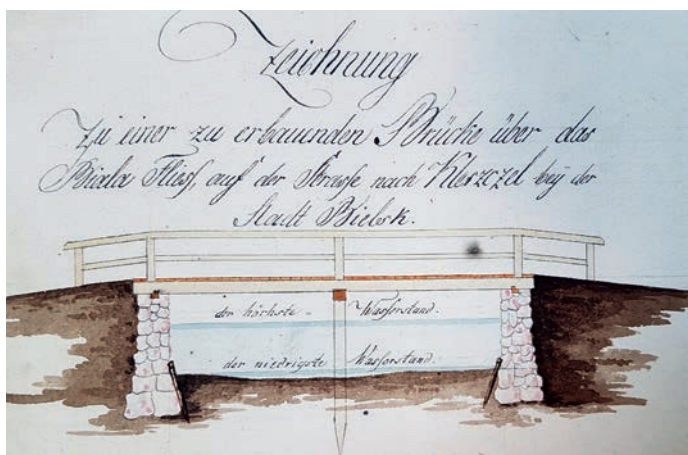 Zeichnung
Zu einer zu erbauenden Brücke über das
Biala Fliess, auf der Strasse nach Kleszczel bey der
Stadt Bielsk.
der höchste Wasserstand.
der niedrigste Wasserstand.